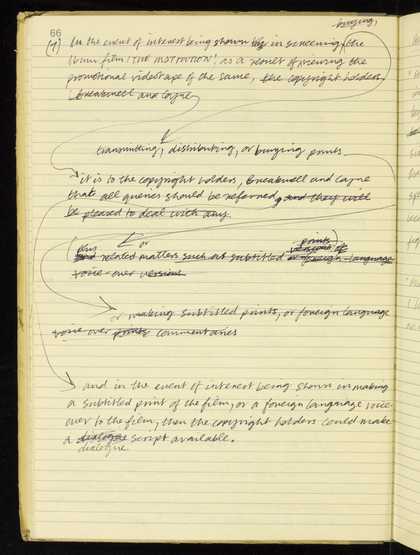 buying,
66
(7) In the event of interest being shown in screening the
16mm film 'THE INSTITUTION', as a result of viewing the
promotional videotape of the same, the copyright holders
Breakwell and Coyne
transmitting, distributing, or buying prints
it is to the copyright holders, Breakwell and Coyne
that all queries should be referred, and they will
be pleased to deal with any
plus or prints
and related matters such as subtitled versions or foreign language
voice-over versions
or making subtitled prints, or foreign language
voice-over prints commentaries
and in the event of interest being shown in making
a subtitled print of the film, or a foreign language voice-
over to the film, then the copyright holders could make
a dialogue script available.
dialogue